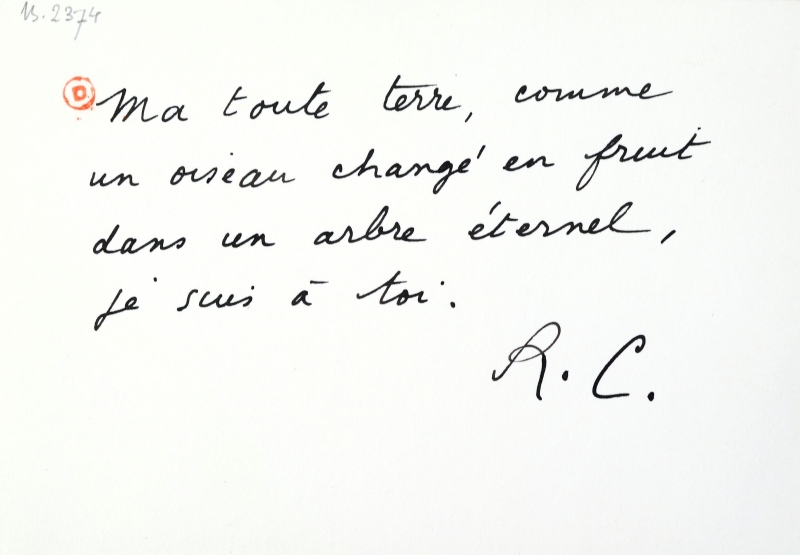 B.2374
Ma toute terre, comme
un oiseau changé en fruit
dans un arbre éternel,
je suis à toi.
R. C.